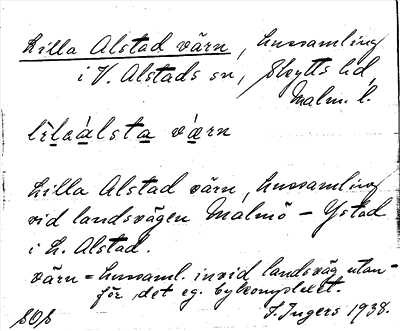 Lilla Alstad värn, hussamling
i V. Alstads sn, Skytts hd,
Malm. l.
lìlaálsta væ̀rn
Lilla Alstad värn, hussamling
vid landsvägen Malmö - Ystad
i L. Alstad.
värn = hussaml. invid landsväg utan-
för det eg. bykomplexet.
SOS I. Ingers 1938.